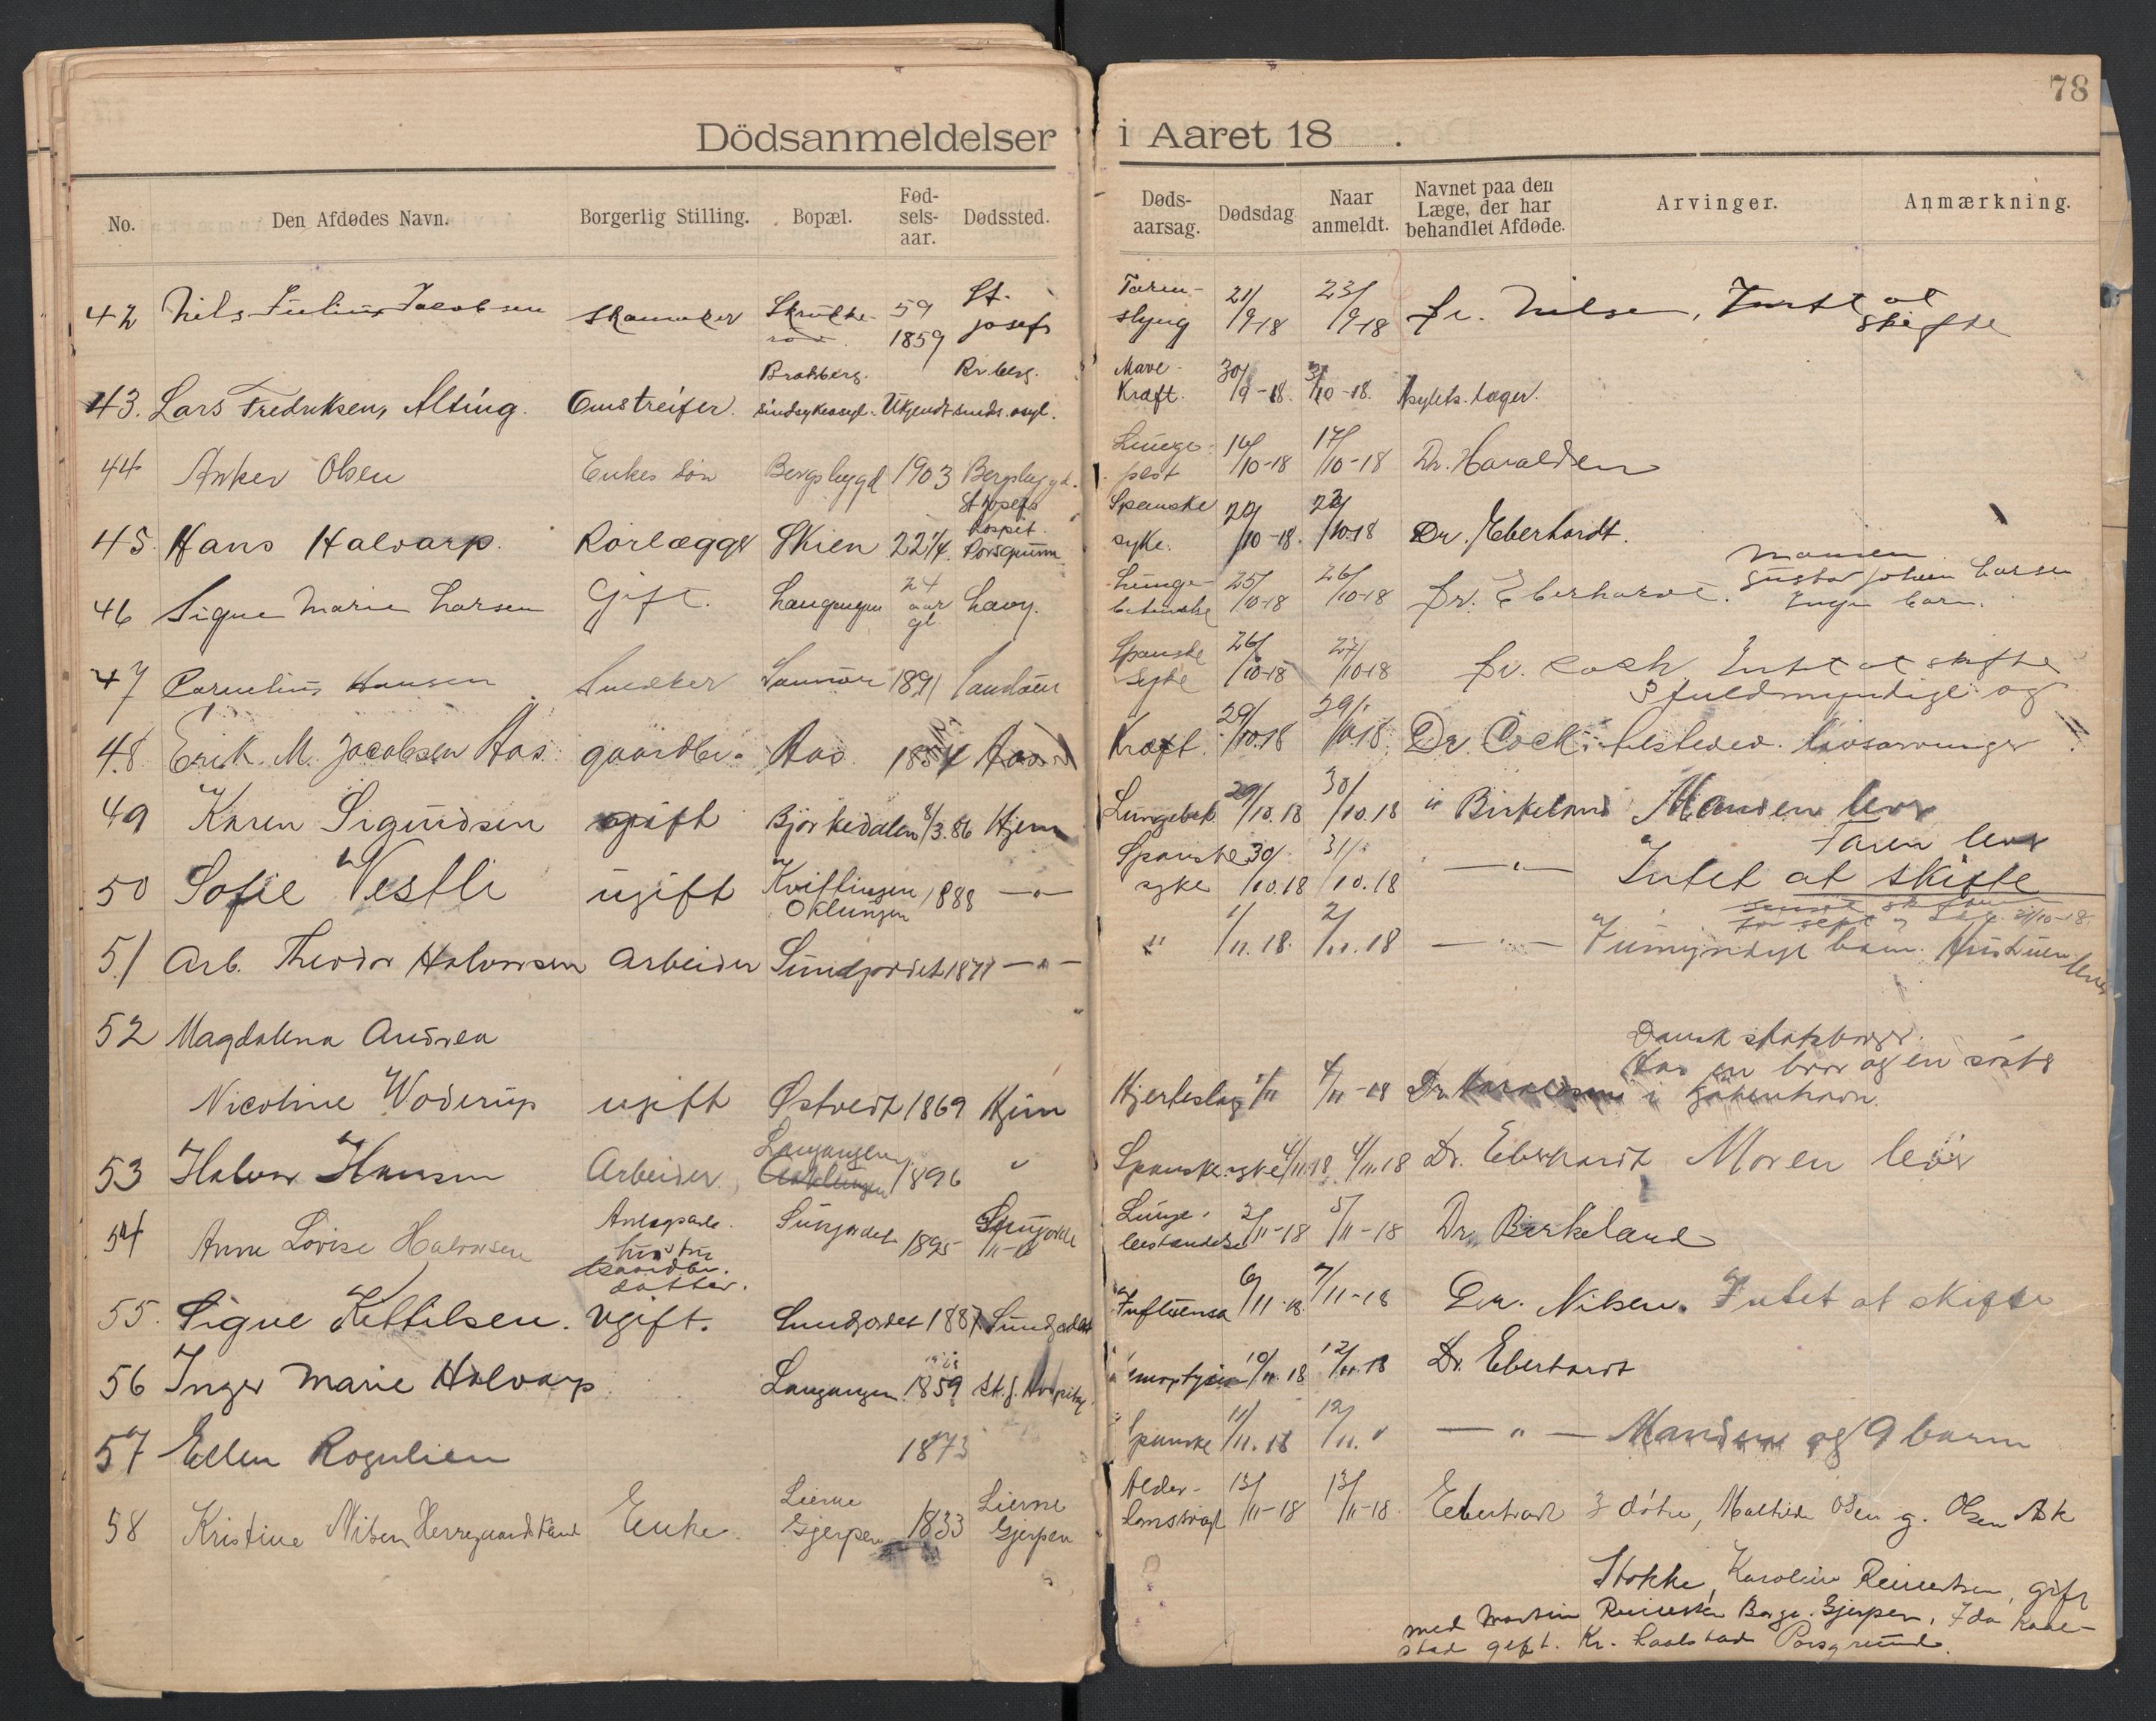 78
Dödsanmeldelser i Aaret 18 .
No. Den Afdødes Navn. Borgerlig Stilling. Bopæl. Fød-sels-aar. Dødssted. Døds-aarsag. Dødsdag Naar anmeldt. Navnet paa den Læge, der har behandlet Afdøde. Arvinger. Anmærkning.
42 Nils Julius Jacobsen Skomaker 59 1859 St. Josefs Tarm-slyng 21/9-18 23/9-18 Dr. Nilsen, Intet at skifte
43. Lars Fredriksen, Alting. Omstreifer. Bratsberg. sindsykeasyl. Ukjendt sinds.asyl. Mave-Kræft. 30/9-18. 3/10-18. Asylets læger.
44 Anker Olsen Enkes søn Bergsbygd 1903 Bergsbygd. Lunge-pest 16/10-18 17/10-18 Dr. Haraldsen
45. Hans Halvarp. Rørlægger Skien 22 1/4. St Josefs Hospit. Porsgrunn Spanske syke. 20/10-18. 22/10-18 Dr. Eberhardt.
46 Signe Marie Larsen Gift. Langangen 24 aar gl. Lang. Lunge-betændelse 25/10-18 26/10-18 Dr. Eberhardt. Manden Gustav Johan Larsen Ingen barn.
47 Cornelius Hansen Snedker 1891 Spanske Syke 26/10-18 27/10-18 Dr. Cock Intet at skifte
48. Erik. M. Jacobsen Aas. gaardbr. Aas. Aas Kræft. 29/10.18 29/10.18. Dr. Cock 3 fuldmyndige og livsarvinger
49 Karen Sigurdsen gift Bjørkedalen 8/3.86 Hjem Lungebet. 29/10.18 30/10.18 " Birkeland Manden lever
50 Sofie Vestli ugift Kvittingen Oklungen 1888 —"— Spanske syke 30/10.18 31/10.18 —"— Faren lever Intet at skifte
51 Arb. Theodor Halvorsen Arbeider Sundjordet —"— " 1/11.18. 2/11.18 —"— 7 umyndige barn. Hustruen lever
52 Magdalena Andrea
Nicoline Woderup ugift Østvedt 1869 Hjem Hjerteslag 4/11-18 Dr. Dansk statsborger. Har en bror og en søster i Kjøbenhavn.
53 Halvor Hansen Arbeider Langangen 1896 " Spanske syke 4/11.18. 4/11.18 Dr. Eberhardt Moren lever
54 Anne Lovise Halvorsen hustru Sundjordet 1895 Lunge-betændelse 2/11-18 5/11-18 Dr. Birkeland
55. Signe Kittilsen. Gaardbr. datter. Ugift. Sundjordet 1887 Sundjordet Influensa 6/11-18. 7/11-18 Dr. Nilsen. Intet at skifte
56 Inger Marie Halvarp Langangen 1859 St. J. Hospital 10/11.18 12/11.18 Dr. Eberhardt
57 Ellen Rognlien 1873 Spanske 11/11.18 12/11. " —"— Manden og 9 barn
58 Kristine Nilsen Enke Lierne Gjerpen 1833 Lierne Gjerpen Alder-domssvagh 13/11-18 13/11-18. Eberhardt 3 døtre, Mathilde Olsen g. Olsen
Stokke, Karoline Reinertsen, gift
med Martin Reinertsen Borge. Gjerpen. Ida
gift. Kr. Porsgrund.